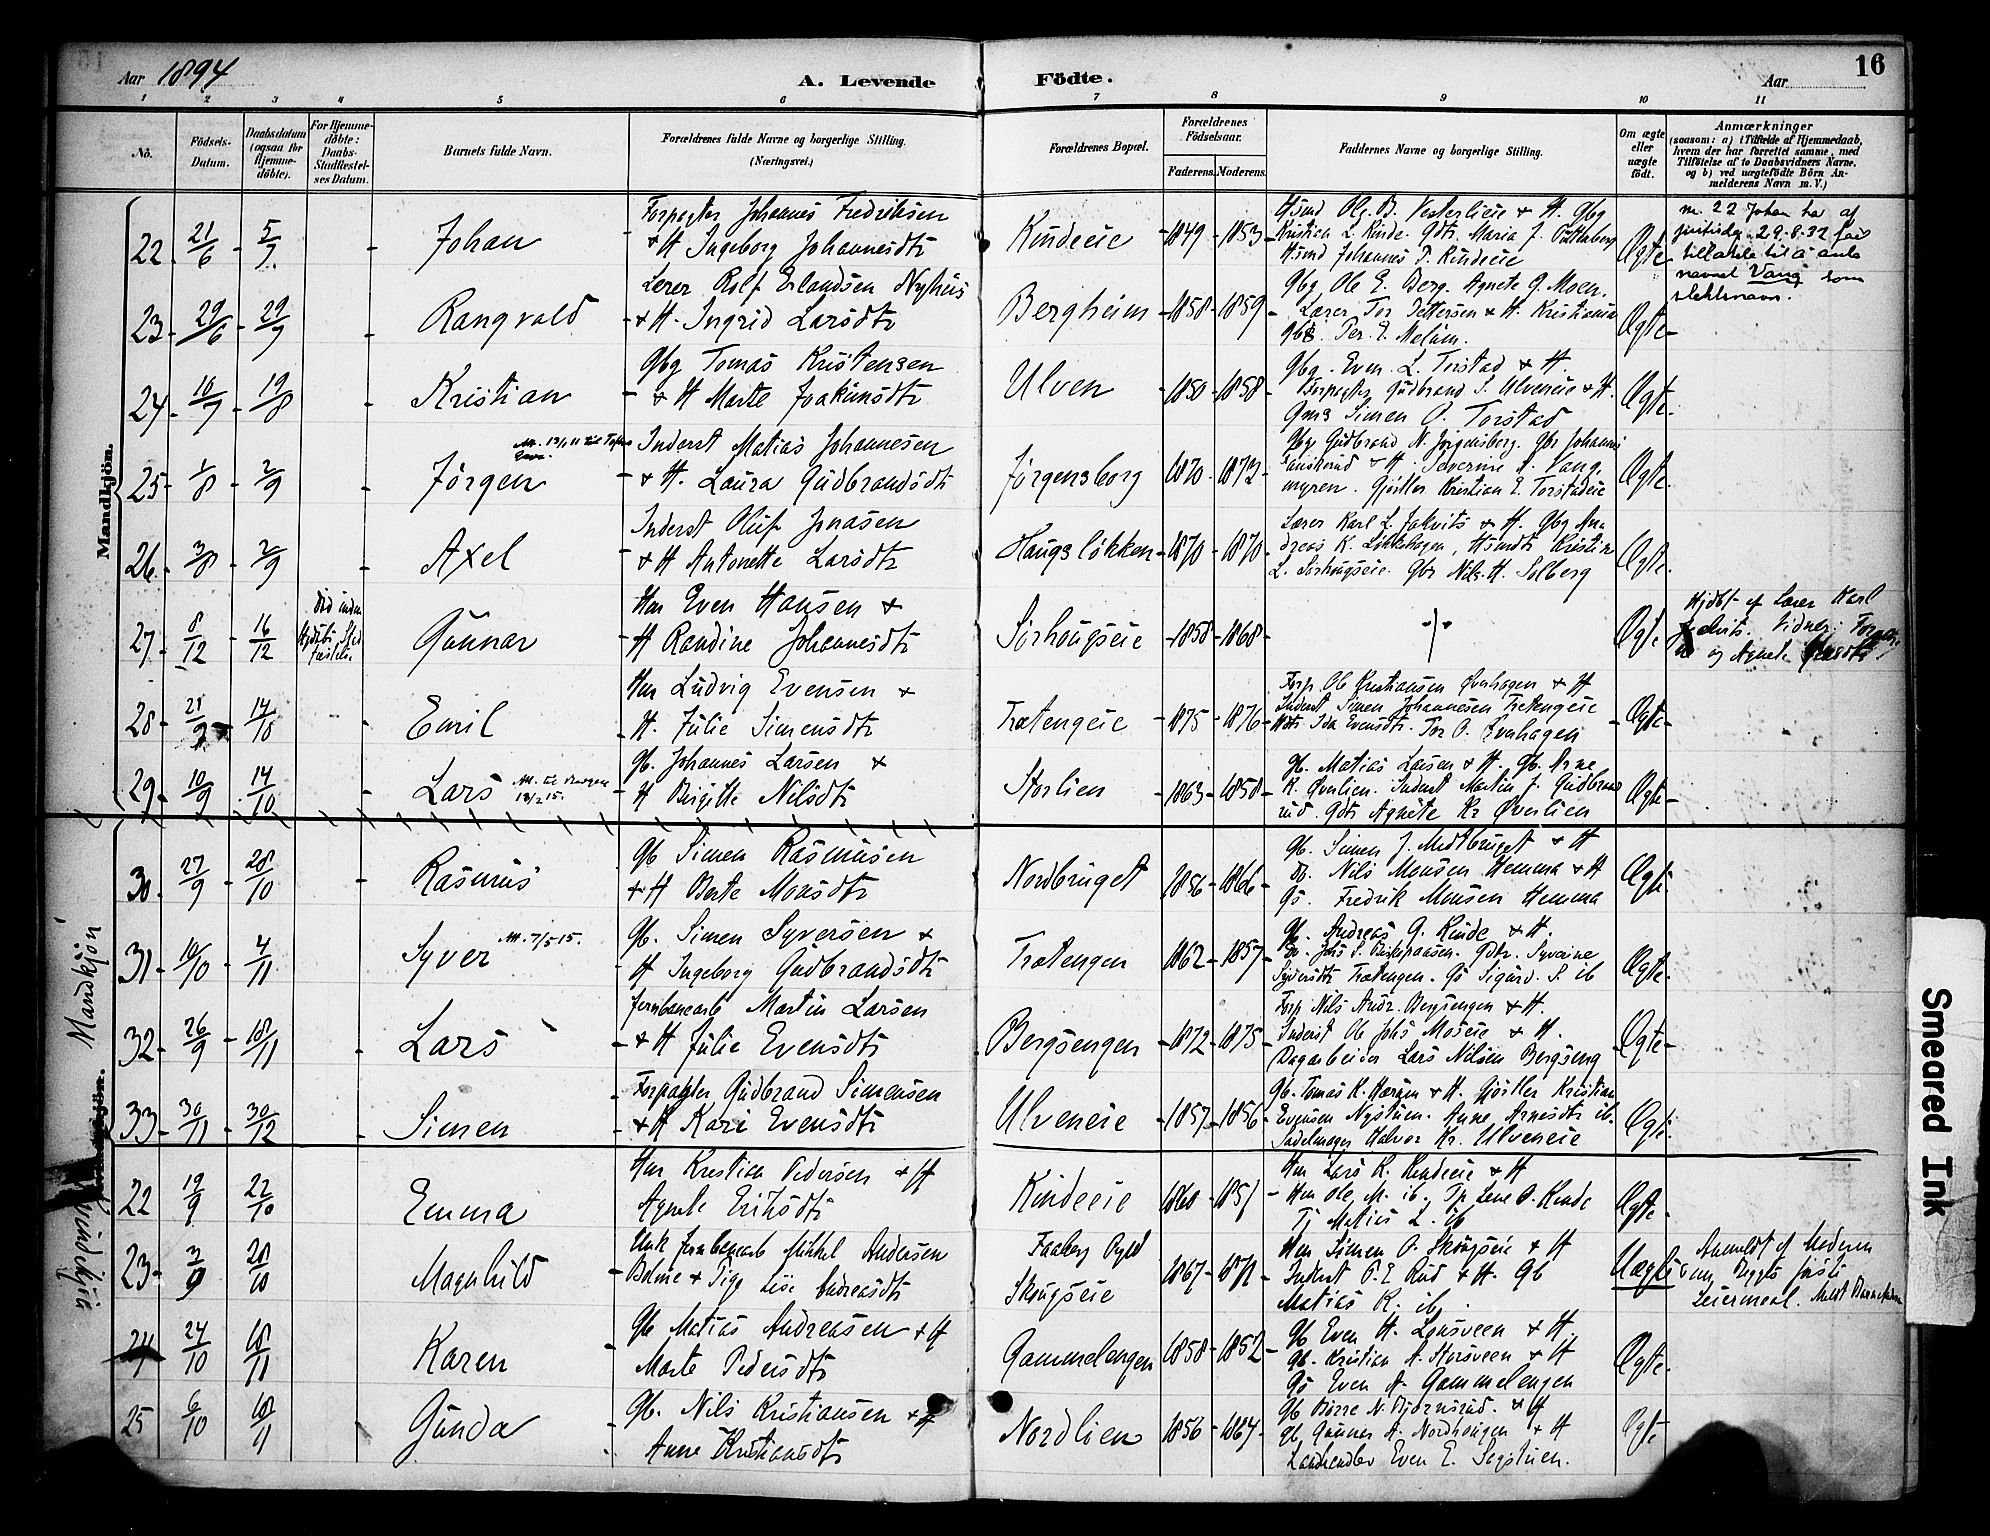 Aar 1894
A. Levende
Födte.
Aar
16
1 2 3 4 5 6 7 8 9 10 11
No.
Födsels-Datum.
Daabsdatum (ogsaa for Hjemme-döbte).
For Hjemme-döbte: Daabs-Stadfæstel-ses Datum.
Barnets fulde Navn.
Forældrenes fulde Navne og borgerlige Stilling. (Næringsvei.)
Forældrenes Bopæl.
Forældrenes Födselsaar.
Faderens. Moderens.
Faddernes Navne og borgerlige Stilling.
Om ægte eller uægte födt.
Anmærkninger
(saasom: a) i Tilfælde af Hjemmedaab, hvem der har forrettet samme, med Tilföielse af to Daabsvidners Navne, og b) ved uægtefödte Börn An-melderens Navn m. V.)
Mandkjön.
22 21/6 5/7 Johan
Forpagter Johannes Fredriksen
+ H Ingeborg Johannesdtr
Kindeeie 1849 1853
Husmd Ole B. Vesterlieie + H. Gbg
Kristian L. Kinde. Gdtr. Maria J.
Husmd Johannes P. Kindeeie
Ægte
nr. 22 Johan har af
justisdep. 29-8-32 faat
tillatelse til å anta
navnet Vang som
slektsnavn.
23 29/6 29/7 Rangvald
Lærer Rolf Erlandsen Nyhus
+ H. Ingrid Larsdtr
Bergheim 1858 1859
Gbg Ole E. Berg. Agnete G. Moen.
Lærer Tor Pettersen + H. Kristiania
Gbs. Per E. Melum.
Ægte
24 16/7 19/8 Kristian
Gbg Tomas Kristensen
+ H Marte Joakimsdtr
Ulven 1850 1858
Gbg. Even L. Torstad + H.
Forpagter Gudbrand S. Ulveneie + H.
Gms Simen O. Torstad
Ægte
25 1/8 2/9 Jörgen
Inderst Matias Johannesen
+ H. Laura Gudbrandsdtr
Jörgensborg 1870 1873
Gbg Gudbrand N. Jörgensberg. Gbr Johannes
+ H Severine L. Vang-
myren. Gjötler Kristian E. Torstadeie
Ægte
26 3/8 2/9 Axel
Inderst Oluf Jonasen
+ H Antonette Larsdtr
Haugslökken 1870 1870
Lærer Karl L. Jakvits + H. Gbg An-
dreas K. Lökkehagen, Husmdtr Kristine
L. Sörhougseie. Gbr Nils H. Solberg
Ægte
27 8/12 16/12
Död inden
Gunnar
Hm Even Hansen +
H Randine Johannesdtr
Sörhougseie 1858 1868
Ægte
Hjdöbt af Lærer Karl
Jakvits. Vidner:
og Agnete
28 21/7 14/10 Emil
Hm Ludvig Evensen +
H. Julie Simensdtr
Trætengeie 1875 1876
Forp Ole Kristiansen Överhagen + H
Inderst Simen Johannesen Tretengeie
Ida Evensdtr. Tor O. Överhagen
Ægte
29 10/9 14/10 Lars
18/2 15.
Gb. Johannes Larsen +
H Birgitte Nilsdtr
Storlien 1863 1858
Gb. Matias Larsen + H. Gb. Arne
K. Överlien. Inderst Martin J. Gudbrands
rud. Gdtr Agnete Kr Överlien
Ægte
Mandkjön
30 27/9 28/10 Rasmus
Gb Simen Rasmusen
+ H Berte Monsdtr
Nordbruget 1856 1866
Gb. Simen J. Midtbruget + H
Nils Monsen Hemma + H
Gs. Fredrik Monsen Hemma
Ægte
31 10/10 4/11 Syver
7/5 15.
Gb. Simen Syversen +
H Ingeborg Gudbrandsdtr
Trætengen 1862 1857
Gb. Andreas G. Kinde + H.
Syversdtr Trætengen. Gs Sigurd S. ib
Ægte
32 26/9 18/11 Lars
Jernbanearb Martin Larsen
+ H Julie Evensdtr
Bergsengen 1872 1875
Forp Nils Andr. Bergsengen + H.
Inderst Ole Johs Moseie + H.
Dagarbeider Lars Nilsen Bergseng
Ægte
33 30/11 30/12 Simen
Forpagter Gudbrand Simensen
+ H Kari Evensdtr
Ulveneie 1857 1856
Gb. Tomas K. + H. Gjötler Kristian
Evensen Nystuen. Anne Arnesdtr ib.
Sadelmager Halvor Kr. Ulveneie
Ægte
Kvindekjön
22 19/9 22/10 Emma
Hm Kristian Pedersen + H
Agnete Eriksdtr
Kindeeie 1860 1851
Hm Lars K. Kindeeie + H
Hm Ole M. ib. Tp Lene O. Kinde
Tj Matias L. ib
Ægte
23 2/9 28/10 Magnhild
Unk Jernbanearb Mikkel Andersen
+ Pige Lise Andreasdtr
Faaberg
Skougseie 1867 1871
Hm Simen O. Skougseie + H
Inderst P. E. Rud + H. Gb
Matias K. ib.
Uægte
Anmeldt af Moderen
Begges förste
Leiermaal.
24 24/10 18/11 Karen
Gb Matias Andreasen + H
Marte Pedersdtr
Gammelengen 1858 1852
Gb Even H. Lonsveen + H
Gb. Kristian A. Storsveen + H
Gs Even A. Gammelengen
Ægte
25 6/10 18/11 Gunda
Gb. Nils Kristiansen + H
Anne Kristiansdtr
Nordlien 1856 1864
Gb Börre N. Björnsrud. + H
Gb. Gunnar A. Nordhougen + H
Landhandler Even E. Segstuen.
Ægte
Smeared Ink